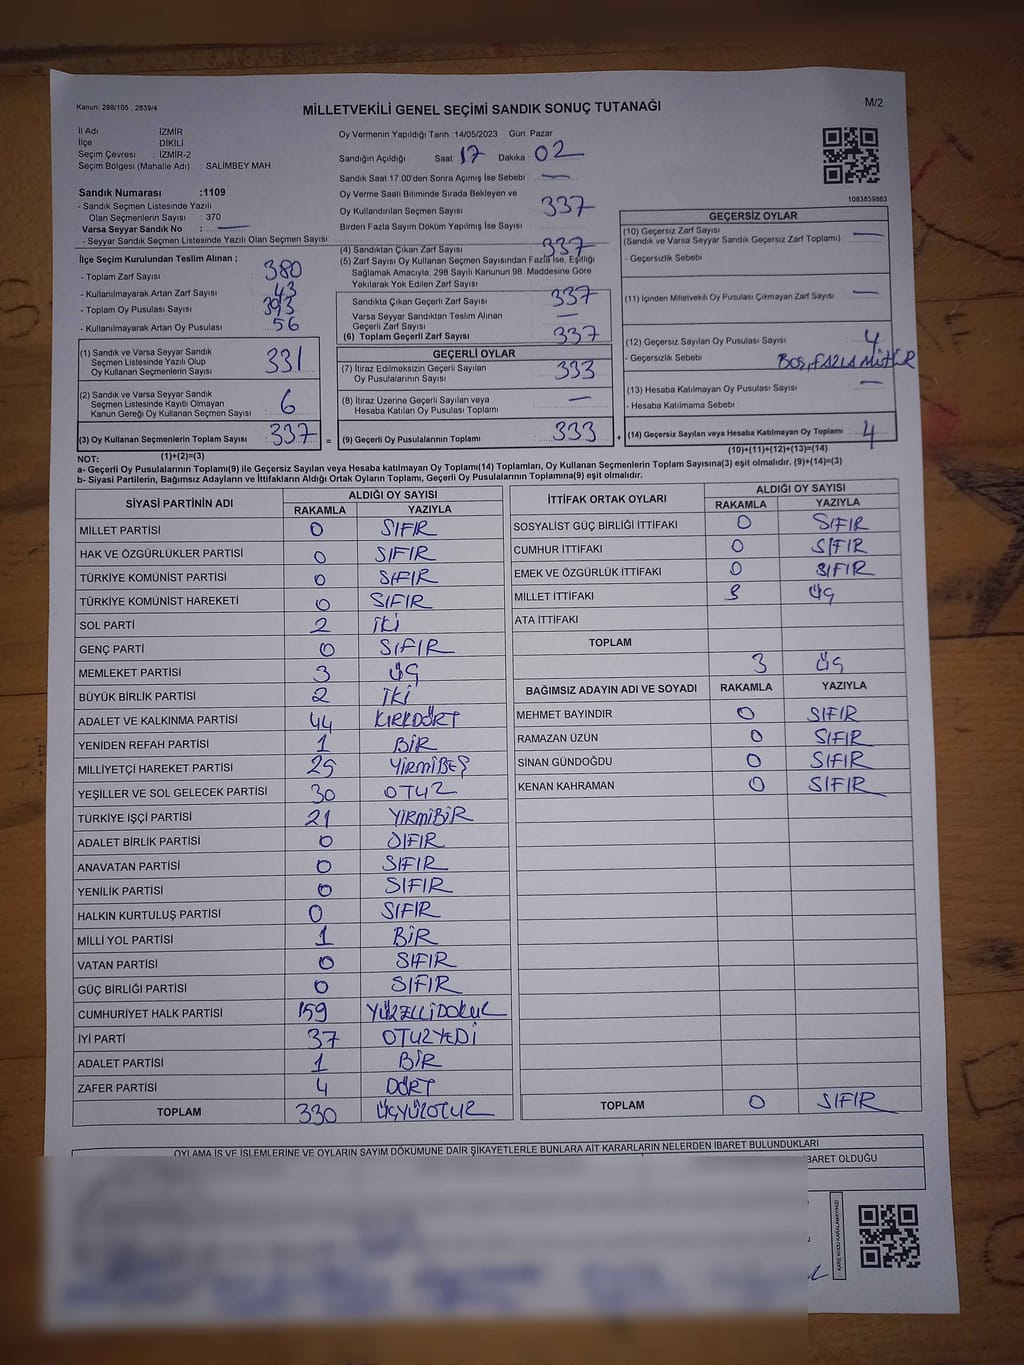 Kanun: 298/105 , 2839/4
MİLLETVEKİLİ GENEL SEÇİMİ SANDIK SONUÇ TUTANAĞI
M/2
İl Adı : İZMİR
İlçe : DİKİLİ
Seçim Çevresi : İZMİR-2
Seçim Bölgesi (Mahalle Adı) : SALİMBEY MAH
Sandık Numarası :1109
- Sandık Seçmen Listesinde Yazılı
Olan Seçmenlerin Sayısı : 370
Varsa Seyyar Sandık No : —
- Seyyar Sandık Seçmen Listesinde Yazılı Olan Seçmen Sayısı
İlçe Seçim Kurulundan Teslim Alınan ;
- Toplam Zarf Sayısı : 380
- Kullanılmayarak Artan Zarf Sayısı : 43
- Toplam Oy Pusulası : 393
- Kullanılmayarak Artan Oy Pusulası : 56
(1) Sandık ve Varsa Seyyar Sandık
Seçmen Listesinde Yazılı Olup
Oy Kullanan Seçmenlerin Sayısı : 331
(2) Sandık ve Varsa Seyyar Sandık
Seçmen Listesinde Kayıtlı Olmayan
Kanun Gereği Oy Kullanan Seçmen Sayısı : 6
(3) Oy Kullanan Seçmenlerin Toplam Sayısı : 337
(1)+(2)=(3)
Oy Vermenin Yapıldığı Tarih :14/05/2023 Gün: Pazar
Sandığın Açıldığı Saat: 17 Dakika : 02
Sandık Saat 17.00'den Sonra Açımış İse Sebebi : —
Oy Verme Saati Bitiminde Sırada Bekleyen ve
Oy Kullandırılan Seçmen Sayısı : 337
Birden Fazla Sayım Döküm Yapılmış İse Sayısı :
(4) Sandıktan Çıkan Zarf Sayısı : 337
(5) Zarf Sayısı Oy Kullanan Seçmen Sayısından Fazla İse, Eşitliği
Sağlamak Amacıyla, 298 Sayılı Kanunun 98. Maddesine Göre
Yakılarak Yok Edilen Zarf Sayısı :
Sandıkta Çıkan Geçerli Zarf Sayısı : 337
Varsa Seyyar Sandıktan Teslim Alınan
Geçerli Zarf Sayısı : —
(6) Toplam Geçerli Zarf Sayısı : 337
=
GEÇERLİ OYLAR
(7) İtiraz Edilmeksizin Geçerli Sayılan
Oy Pusulalarının Sayısı : 333
(8) İtiraz Üzerine Geçerli Sayılan veya
Hesaba Katılan Oy Pusulası Toplamı : —
(9) Geçerli Oy Pusulalarının Toplamı : 333
+
1083859863
GEÇERSİZ OYLAR
(10) Geçersiz Zarf Sayısı : —
(Sandık ve Varsa Seyyar Sandık Geçersiz Zarf Toplamı)
- Geçersizlik Sebebi :
(11) İçinden Milletvekili Oy Pusulası Çıkmayan Zarf Sayısı : —
(12) Geçersiz Sayılan Oy Pusulası Sayısı : 4
- Geçersizlik Sebebi : BOŞ, FAZLA MÜHÜR
(13) Hesaba Katılmayan Oy Pusulası Sayısı : —
- Hesaba Katılmama Sebebi :
(14) Geçersiz Sayılan veya Hesaba Katılmayan Oy Toplamı : 4
(10)+(11)+(12)+(13)=(14)
NOT:
a- Geçerli Oy Pusulalarının Toplamı(9) ile Geçersiz Sayılan veya Hesaba katılmayan Oy Toplamı(14) Toplamları, Oy Kullanan Seçmenlerin Toplam Sayısına(3) eşit olmalıdır. (9)+(14)=(3)
b- Siyasi Partilerin, Bağımsız Adayların ve İttifakların Aldığı Ortak Oyların Toplamı, Geçerli Oy Pusulalarının Toplamına(9) eşit olmalıdır.
SİYASİ PARTİNİN ADI ALDIĞI OY SAYISI
RAKAMLA YAZIYLA
MİLLET PARTİSİ 0 SIFIR
HAK VE ÖZGÜRLÜKLER PARTİSİ 0 SIFIR
TÜRKİYE KOMÜNİST PARTİSİ 0 SIFIR
TÜRKİYE KOMÜNİST HAREKETİ 0 SIFIR
SOL PARTİ 2 İKİ
GENÇ PARTİ 0 SIFIR
MEMLEKET PARTİSİ 3 ÜÇ
BÜYÜK BİRLİK PARTİSİ 2 İKİ
ADALET VE KALKINMA PARTİSİ 44 KIRKDÖRT
YENİDEN REFAH PARTİSİ 1 BİR
MİLLİYETÇİ HAREKET PARTİSİ 25 YİRMİBEŞ
YEŞİLLER VE SOL GELECEK PARTİSİ 30 OTUZ
TÜRKİYE İŞÇİ PARTİSİ 21 YİRMİBİR
ADALET BİRLİK PARTİSİ 0 SIFIR
ANAVATAN PARTİSİ 0 SIFIR
YENİLİK PARTİSİ 0 SIFIR
HALKIN KURTULUŞ PARTİSİ 0 SIFIR
MİLLİ YOL PARTİSİ 1 BİR
VATAN PARTİSİ 0 SIFIR
GÜÇ BİRLİĞİ PARTİSİ 0 SIFIR
CUMHURİYET HALK PARTİSİ 159 YÜZELLİDOKUZ
İYİ PARTİ 37 OTUZYEDİ
ADALET PARTİSİ 1 BİR
ZAFER PARTİSİ 4 DÖRT
TOPLAM 330 ÜÇYÜZOTUZ
İTTİFAK ORTAK OYLARI ALDIĞI OY SAYISI
RAKAMLA YAZIYLA
SOSYALİST GÜÇ BİRLİĞİ İTTİFAKI 0 SIFIR
CUMHUR İTTİFAKI 0 SIFIR
EMEK VE ÖZGÜRLÜK İTTİFAKI 0 SIFIR
MİLLET İTTİFAKI 3 ÜÇ
ATA İTTİFAKI
TOPLAM
3 ÜÇ
BAĞIMSIZ ADAYIN ADI VE SOYADI RAKAMLA YAZIYLA
MEHMET BAYINDIR 0 SIFIR
RAMAZAN UZUN 0 SIFIR
SİNAN GÜNDOĞDU 0 SIFIR
KENAN KAHRAMAN 0 SIFIR
TOPLAM 0 SIFIR
OYLAMA İŞ VE İŞLEMLERİNE VE OYLARIN SAYIM DÖKÜMÜNE DAİR ŞİKAYETLERLE BUNLARA AİT KARARLARIN NELERDEN İBARET BULUNDUKLARI
İBARET OLDUĞU
KARE KODU KARALAMAYINIZ!